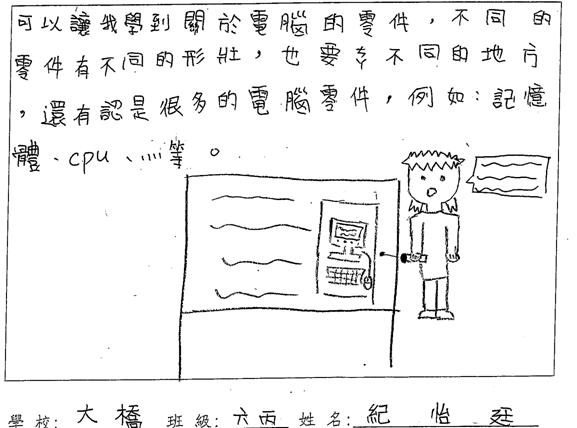 可以讓我學到關於電腦的零件，不同的
零件有不同的形壯，也要在不同的地方
，還有認是很多的電腦零件，例如：記憶
體、cpu、……等。
學校：大橋 班級：六丙 姓名：紀怡廷